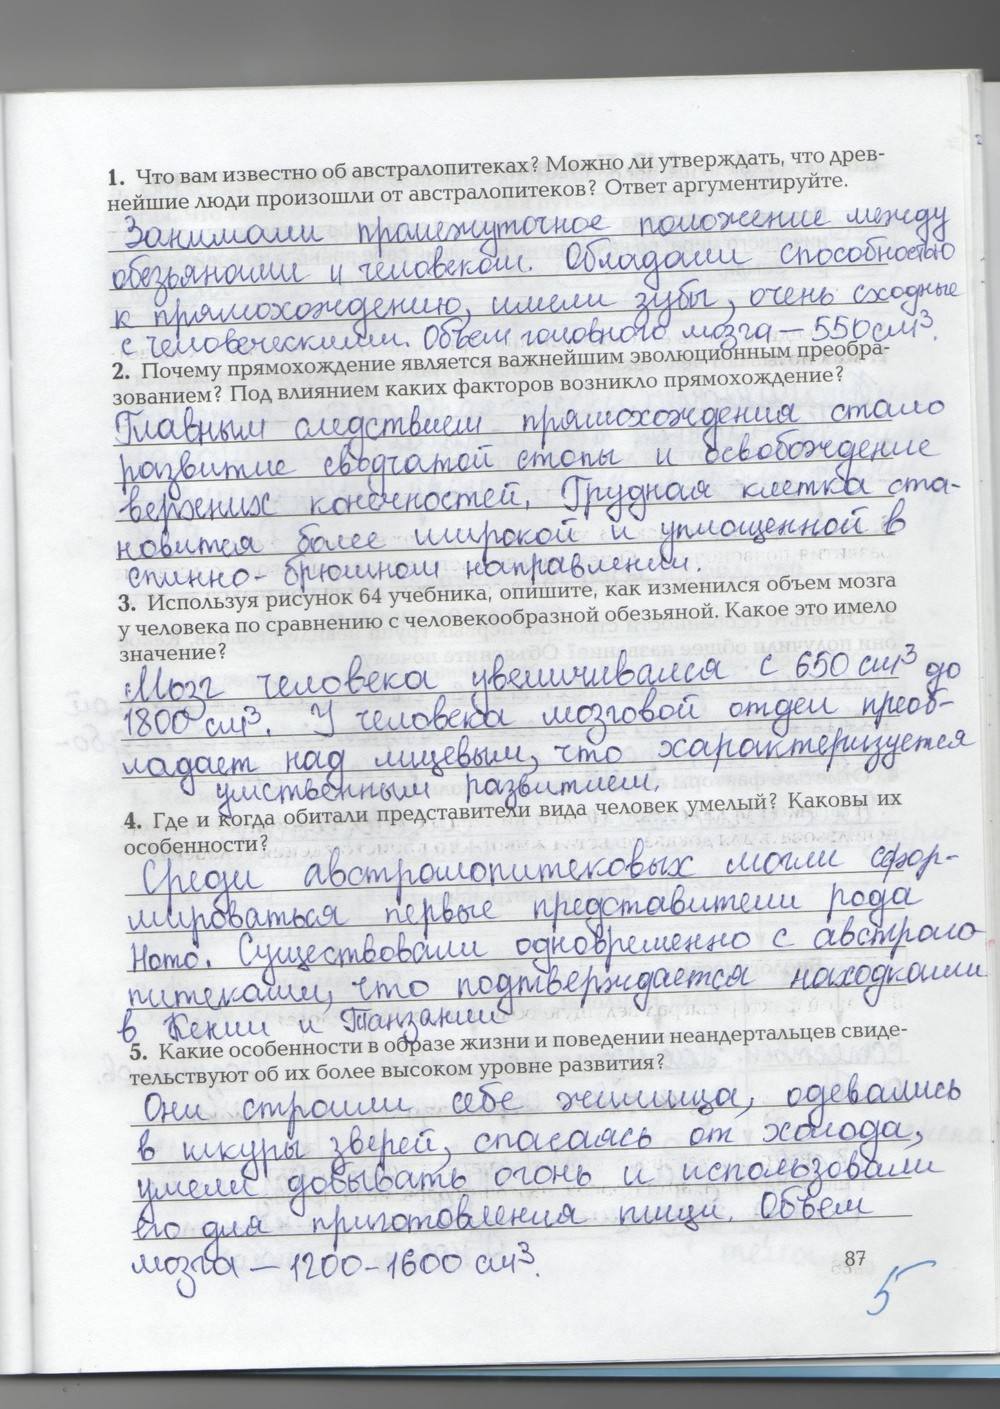 1. Что вам известно об австралопитеках? Можно ли утверждать, что древ-
нейшие люди произошли от австралопитеков? Ответ аргументируйте.
Занимали промежуточное положение между
обезьянами и человеком. Обладали способностью
к прямохождению, имели зубы, очень сходные
с человеческими. Объем головного мозга – 550 см³.
2. Почему прямохождение является важнейшим эволюционным преобра-
зованием? Под влиянием каких факторов возникло прямохождение?
Главным следствием прямохождения стало
развитие сводчатой стопы и освобождение
верхних конечностей. Грудная клетка ста-
новится более широкой и уплощенной в
спинно-брюшном направлении.
3. Используя рисунок 64 учебника, опишите, как изменился объем мозга
у человека по сравнению с человекообразной обезьяной. Какое это имело
значение?
Мозг человека увеличивался с 650 см³ до
1800 см³. У человека мозговой отдел преоб-
ладает над лицевым, что характеризуется
умственным развитием.
4. Где и когда обитали представители вида человек умелый? Каковы их
особенности?
Среди австралопитековых могли сфор-
мироваться первые представители рода
Homo. Существовали одновременно с австрало-
питеками, что подтверждается находками
в Кении и Танзании
5. Какие особенности в образе жизни и поведении неандертальцев свиде-
тельствуют об их более высоком уровне развития?
Они строили себе жилища, одевались
в шкуры зверей, спасаясь от холода,
умели довывать огонь и использовали
его для приготовления пищи. Объем
мозга – 1200-1600 см³.
87
5